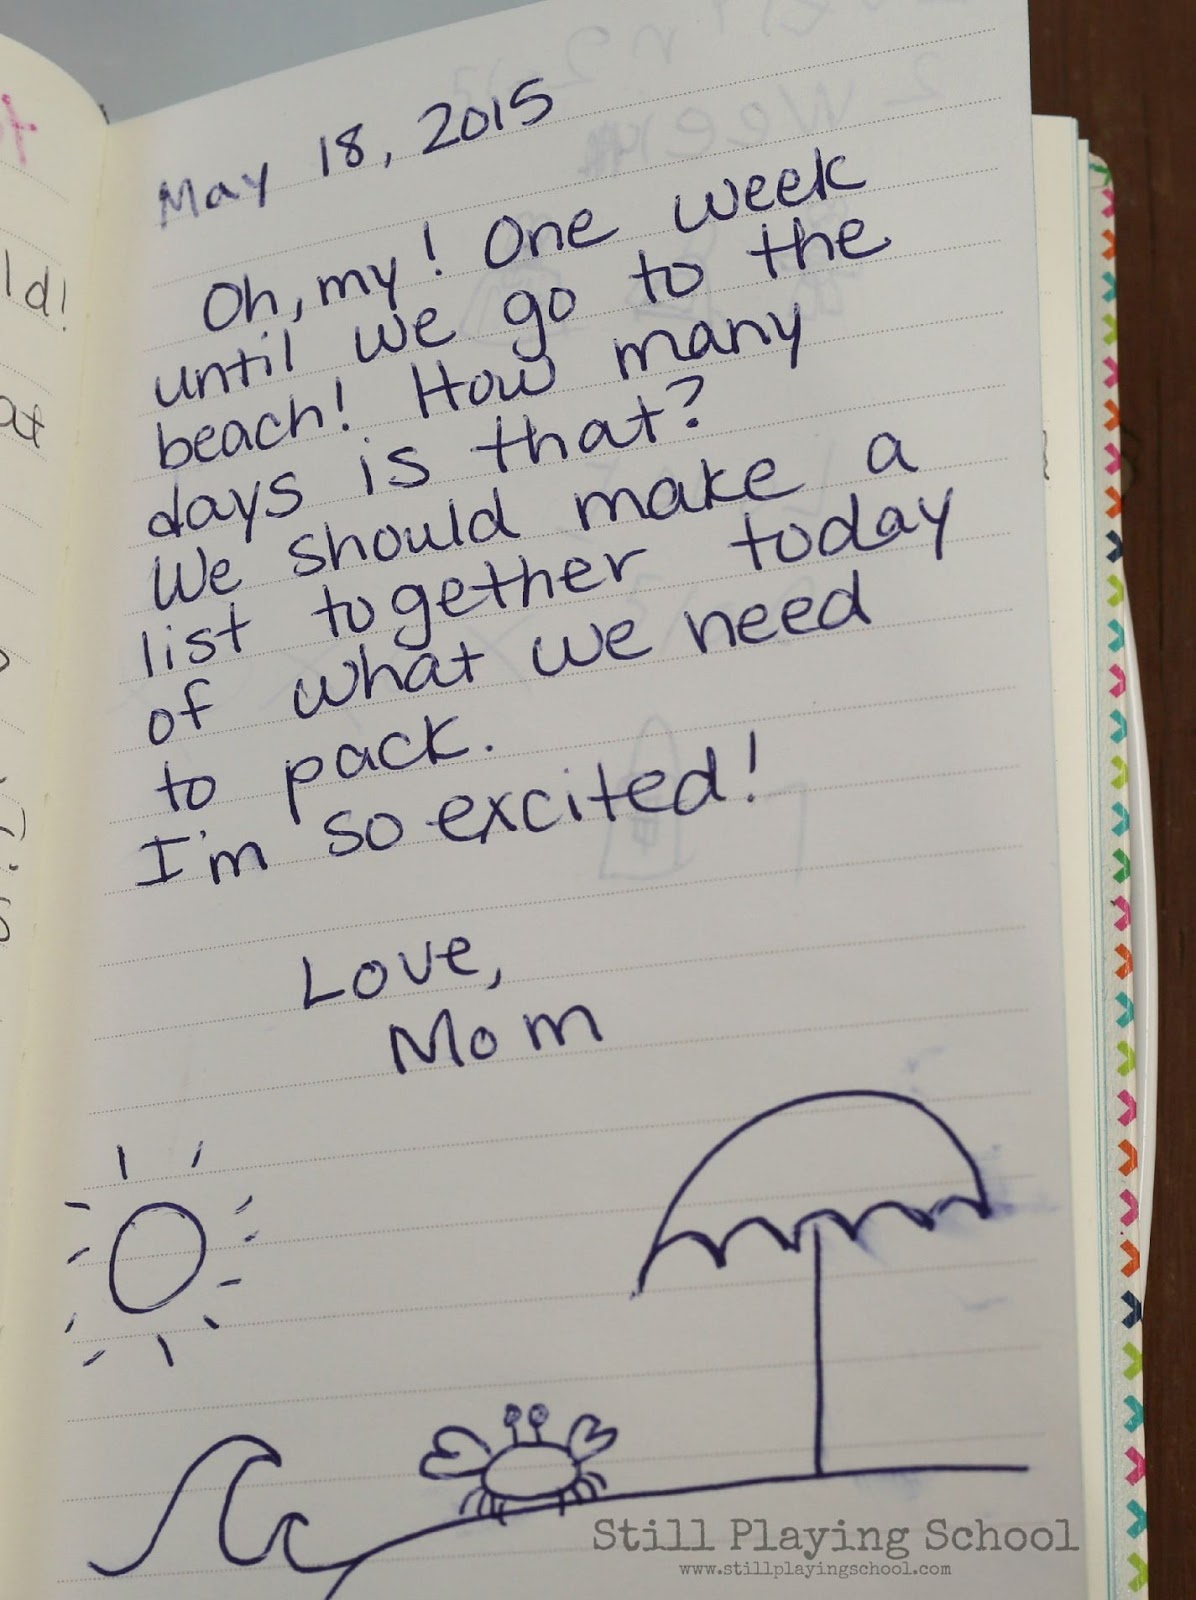 ld!
at
May 18, 2015
Oh, my! One week
until we go to the
beach! How many
days is that?
We should make a
list together today
of what we need
to pack.
I'm so excited!
Love,
Mom
Still Playing School
www.stillplayingschool.com